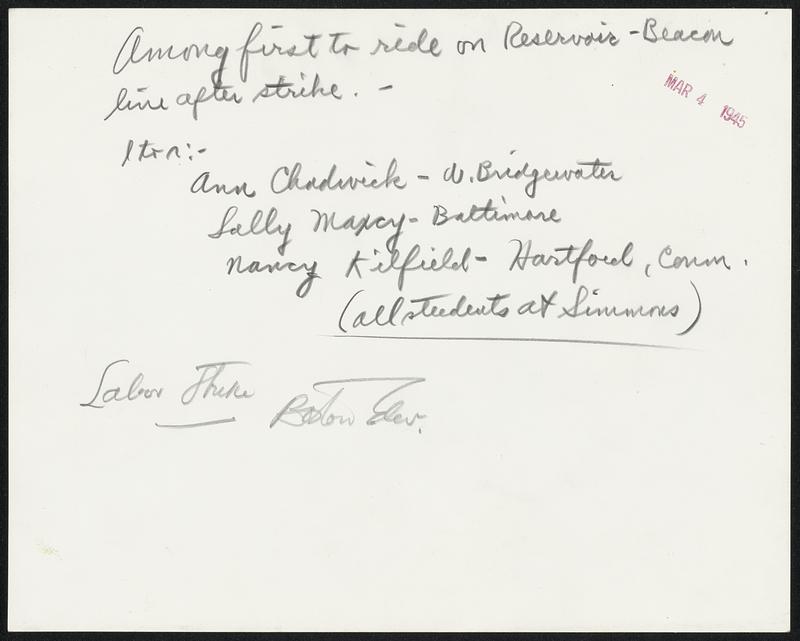 Among first to ride on Reservoir - Beacon
line after strike. -
MAR 4 1945
l to r:-
Ann Chadwick - W. Bridgewater
Sally Maxcy - Baltimore
Nancy Kilfield - Hartford, Conn.
(all students at Simmons)
Labor Strike
Boston Elev.